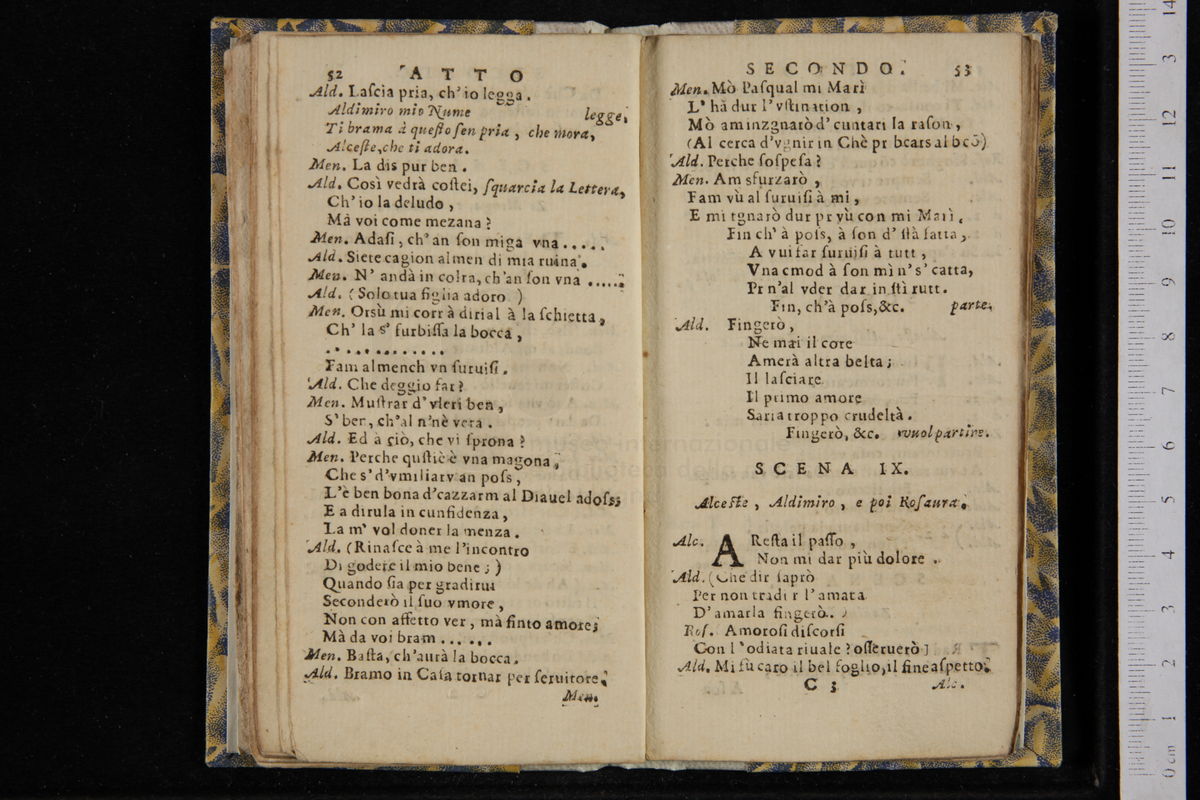 52 ATTO
Ald. Laſcia pria, ch'io legga.
Aldimiro mio Nume legge,
Ti brama à queſto ſen pria, che mora,
Alceſte, che ti adora.
Men. La dis pur ben.
Ald. Così vedrà coſtei, ſquarcia la Lettera,
Ch'io la deludo,
Mà voi come mezana?
Men. Adaſi, ch'an ſon miga vna.....
Ald. Siete cagion almen di mia ruina.
Men. N'andà in colra, ch'an ſon vna .....;
Ald. (Solo tua figlia adoro )
Men. Orsù mi corr à dirial à la ſchietta,
Ch' la s' furbiſſa la bocca,
............
Fam almench vn ſuruiſi.
Ald. Che deggio far?
Men. Muſtrar d'vleri ben,
S'ben, ch'al n'nè vera.
Ald. Ed à ciò, che vi ſprona?
Men. Perche quſtiè è vna magona,
Che s'd'vmiliarv an poſs,
L'è ben bona d'cazzarm al Diauel adoſs;
E a dirula in cunfidenza,
La m' vol doner la menza.
Ald. (Rinaſce à me l'incontro
Di godere il mio bene; )
Quando ſia per gradirui
Seconderò il ſuo vmore,
Non con affetto ver, mà finto amore;
Mà da voi bram......
Men. Baſta, ch'aurà la bocca.
Ald. Bramo in Caſa tornar per ſeruitore.
Men.
SECONDO. 53
Men. Mò Paſqual mi Marì
L'hà dur l'vſtination,
Mò aminzgnarò d'cuntari la raſon,
(Al cerca d'vgnir in Chè pr bears al bcò)
Ald. Perche ſoſpeſa?
Men. Am sfurzarò,
Fam vù al ſuruiſi à mi,
E mi tgnarò dur pr vù con mi Marì.
Fin ch'à poſs, à ſon d'ſtà fatta,
A vui far ſuruiſi à tutt,
Vna cmod à ſon mì n's'catta,
Pr n'al vder dar in ſtì rutt.
Fin, ch'à poſs, &c. parte.
Ald. Fingerò,
Ne mai il core
Amerà altra belta;
Il laſciare
Il primo amore
Saria troppo crudeltà.
Fingerò, &c. vuol partire.
SCENA IX.
Alceſte, Aldimiro, e poi Roſaura.
Alc. AReſta il paſſo,
Non mi dar più dolore.
Ald. (Che dir ſaprò
Per non tradir l'amata
D'amarla fingerò.)
Roſ. Amoroſi diſcorſi
Con l'odiata riuale? oſſeruerò]
Ald. Mi fù caro il bel foglio, il fine aſpetto.
C 3 Alc.